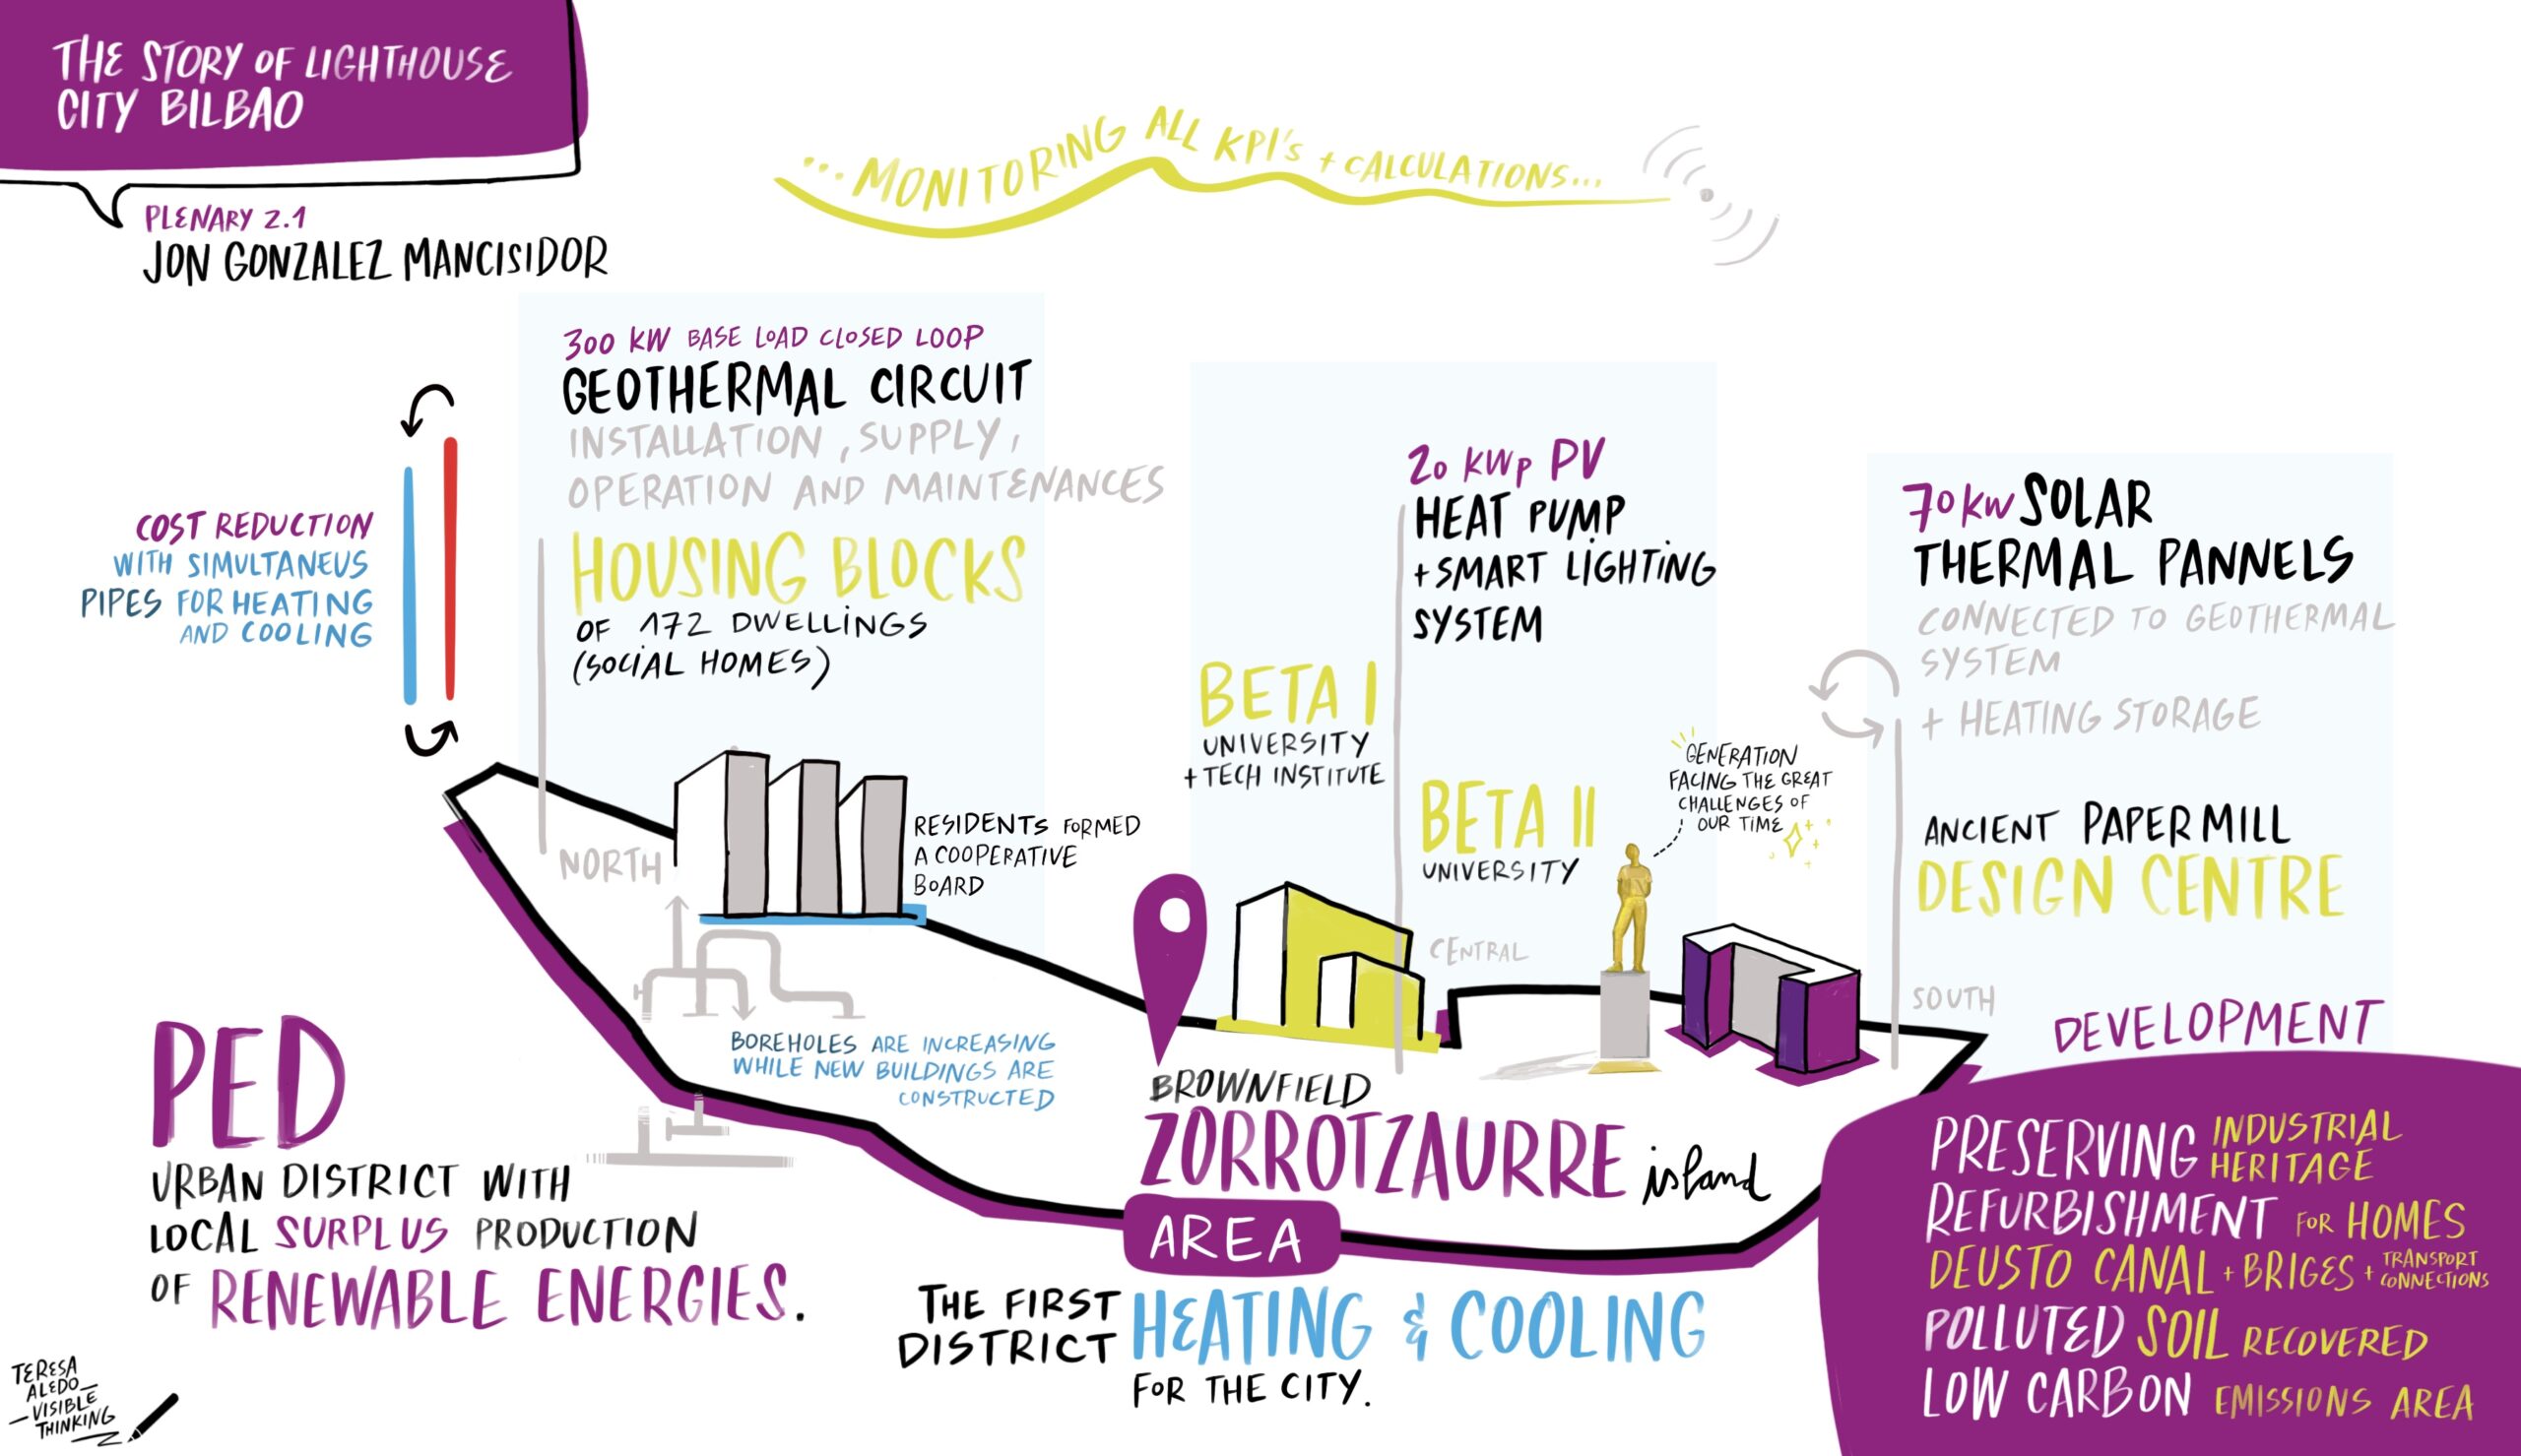 THE STORY OF LIGHTHOUSE
CITY BILBAO
PLENARY 2.1
JON GONZALEZ MANCISIDOR
... MONITORING ALL KPI's + CALCULATIONS...
COST REDUCTION
WITH SIMULTANEUS
PIPES FOR HEATING
AND COOLING
300 KW BASE LOAD CLOSED LOOP
GEOTHERMAL CIRCUIT
INSTALLATION, SUPPLY,
OPERATION AND MAINTENANCES
HOUSING BLOCKS
OF 172 DWELLINGS
(SOCIAL HOMES)
NORTH
RESIDENTS FORMED
A COOPERATIVE
BOARD
BOREHOLES ARE INCREASING
WHILE NEW BUILDINGS ARE
CONSTRUCTED
20 KWp PV
HEAT PUMP
+ SMART LIGHTING
SYSTEM
BETA I
UNIVERSITY
+ TECH INSTITUTE
BETA II
UNIVERSITY
CENTRAL
GENERATION
FACING THE GREAT
CHALLENGES OF
OUR TIME
70 KW SOLAR
THERMAL PANNELS
CONNECTED TO GEOTHERMAL
SYSTEM
+ HEATING STORAGE
ANCIENT PAPER MILL
DESIGN CENTRE
SOUTH
PED
URBAN DISTRICT WITH
LOCAL SURPLUS PRODUCTION
OF RENEWABLE ENERGIES.
BROWNFIELD
ZORROTZAURRE island
AREA
THE FIRST
DISTRICT HEATING & COOLING
FOR THE CITY.
DEVELOPMENT
PRESERVING INDUSTRIAL
HERITAGE
REFURBISHMENT FOR HOMES
DEUSTO CANAL + BRIGES + TRANSPORT
CONNECTIONS
POLLUTED SOIL RECOVERED
LOW CARBON EMISSIONS AREA
TERESA
ALEDO
VISIBLE
THINKING